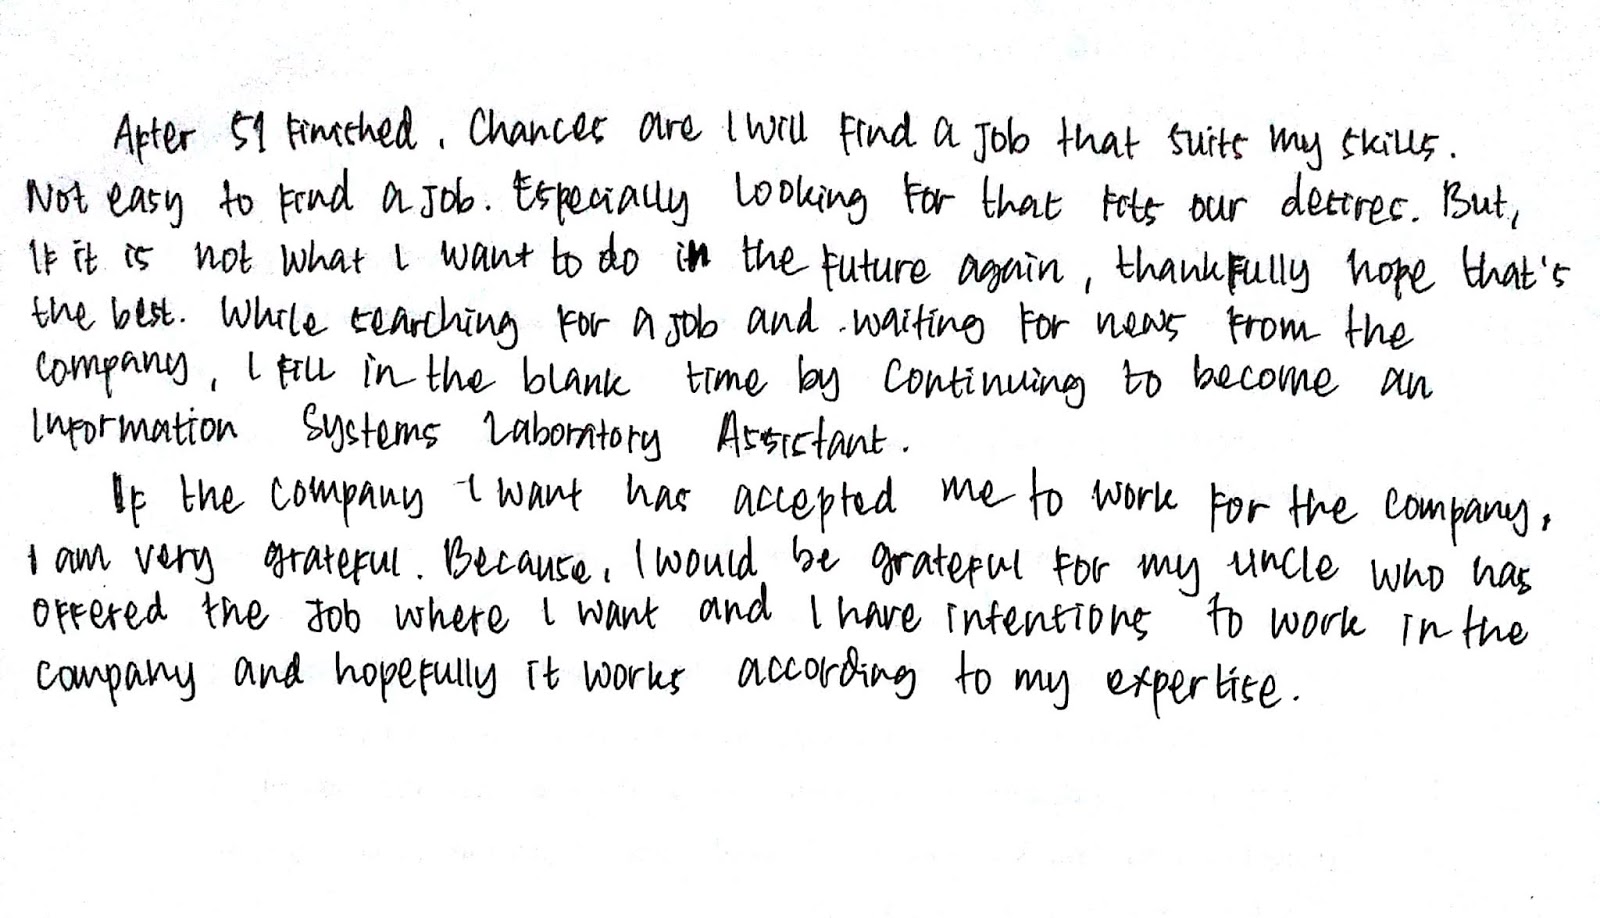 After S1 finished, Chances are I will find a job that suits my skills.
Not easy to find a job. Especially looking for that fits our desires. But,
If it is not what I want to do in the future again, thankfully hope that's
the best. While searching for a job and waiting for news from the
company, I fill in the blank time by continuing to become an
Information Systems Laboratory Assistant.
If the company I want has accepted me to work for the company,
I am very grateful. Because, I would be grateful for my uncle who has
offered the job where I want and I have intentions to work in the
company and hopefully it works according to my expertise.